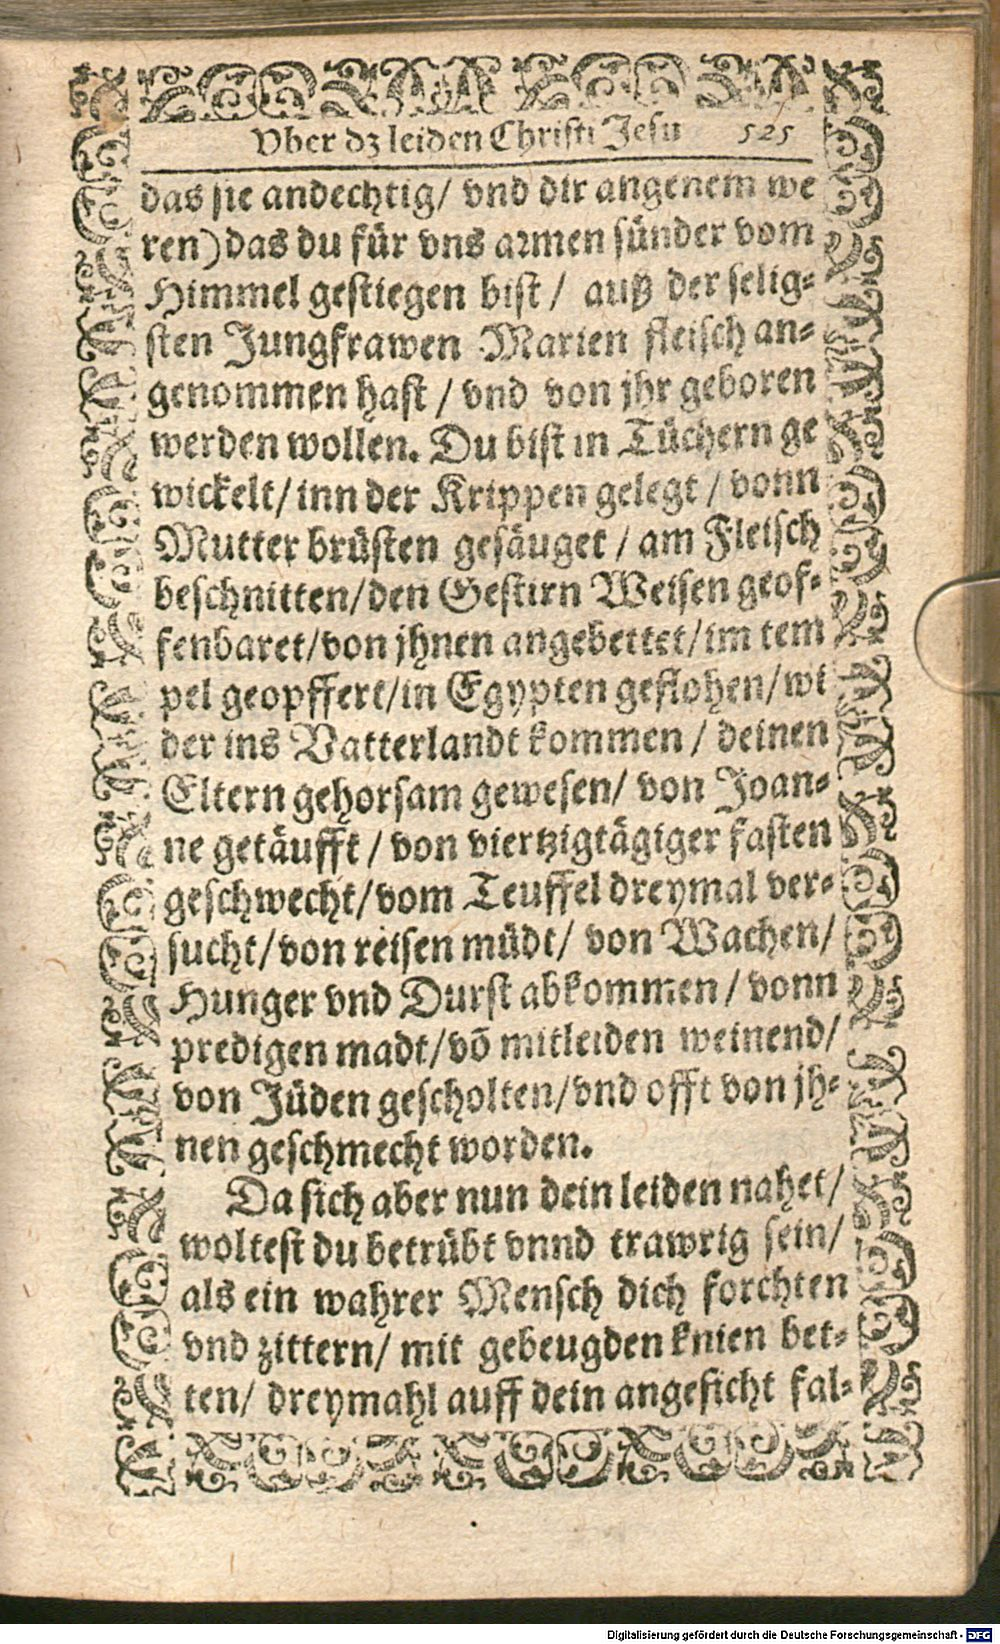 Vber dz leiden Christi Jesu 525
das sie andechtig/ vnd dir angenem we
ren) das du für vns armen sünder vom
Himmel gestiegen bist / auß der selig-
sten Jungfrawen Marien fleisch an-
genommen hast / vnd von jhr geboren
werden wollen. Du bist in Tüchern ge
wickelt/ inn der Krippen gelegt / vonn
Mutter brüsten gesäuget / am Fleisch
beschnitten/den Gestirn Weisen geof-
fenbaret/von jhnen angebettet/im tem
pel geopffert/in Egypten geflohen/wi
der ins Vatterlandt kommen / deinen
Eltern gehorsam gewesen/ von Joan-
ne getäufft / von viertzigtägiger fasten
geschwecht/vom Teuffel dreymal ver-
sucht/von reisen müdt/ von Wachen/
Hunger vnd Durst abkommen / vonn
predigen madt/võ mitleiden weinend/
von Jüden gescholten/vnd offt von jh-
nen geschmecht worden.
Da sich aber nun dein leiden nahet/
woltest du betrübt vnnd trawrig sein/
als ein wahrer Mensch dich forchten
vnd zittern/ mit gebeugden knien bet-
ten/ dreymahl auff dein angesicht fal-
Digitalisierung gefördert durch die Deutsche Forschungsgemeinschaft - DFG